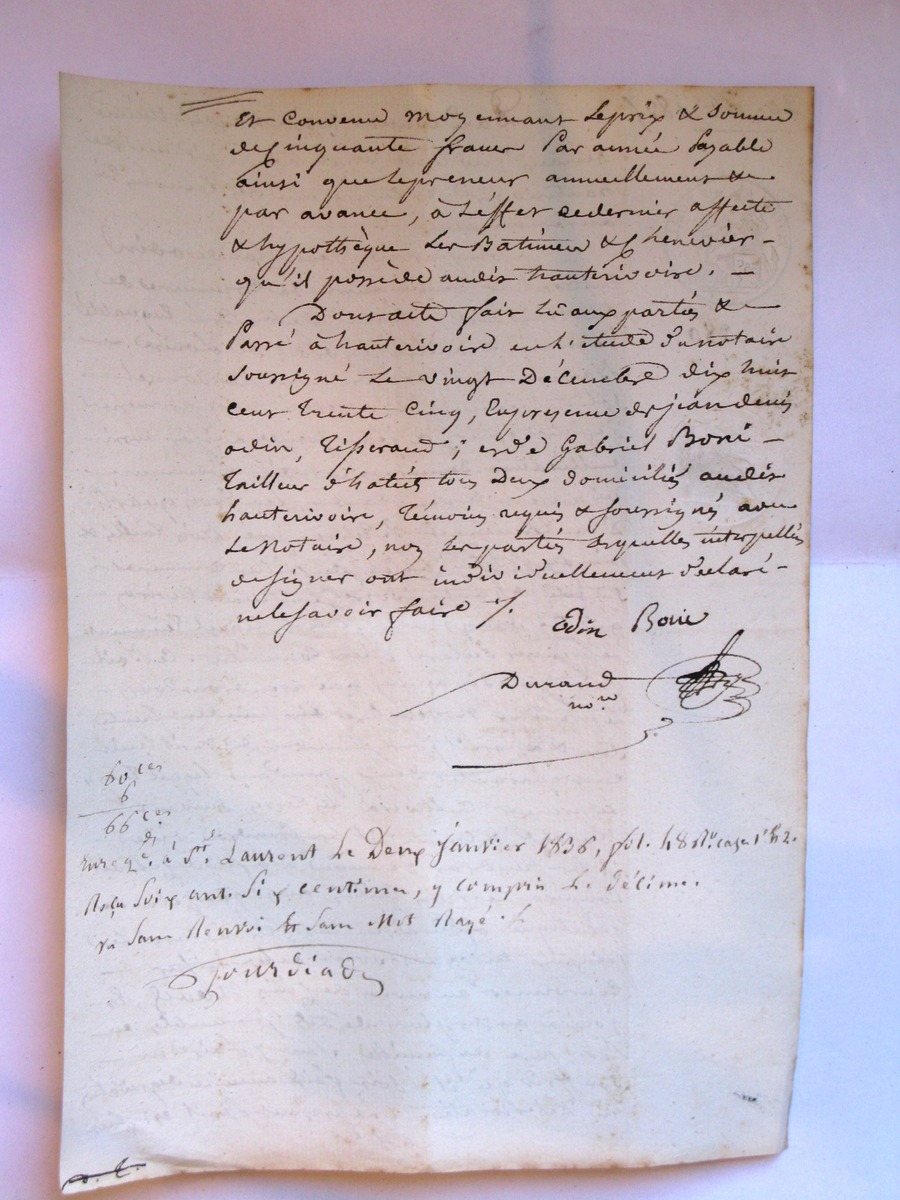 Et Convenu moyennant Le prix & Somme
de Cinquante francs Par année Payable
ainsi que le preneur annuellement &
par avance, à L'éffet ce dernier affecte
& hypothèque Les Batimens & Chenevier -
qu'il possède audit hauterivoire. —
Dont acte fait Lû aux partiés &
Passé à hauterivoire en L'étude du notaire
Soussigné Le vingt Décembre dix huit
cent Trente Cinq, En présence de jean denis
odin, Tisserand; et de Gabriel Boni -
Tailleur d'habits tous Deux domiciliés audit
hauterivoire, Témoins requis & soussignés avec
Le Notaire, non Les partiés Lesquelles interpellés
de Signer ont individuellement déclaré -
ne le Savoir faire ./.
Odin Bonie
Durand
nore
60 ces
6
66 ces
Enregé. à St. Laurent Le Deux Janvier 1836, fol. 48 Ro. case 1 et 2.
Reçu Soixante Six centimes, y compris Le décime.
Sans Renvoi Et Sans Mot Rayé.
Jourdiade